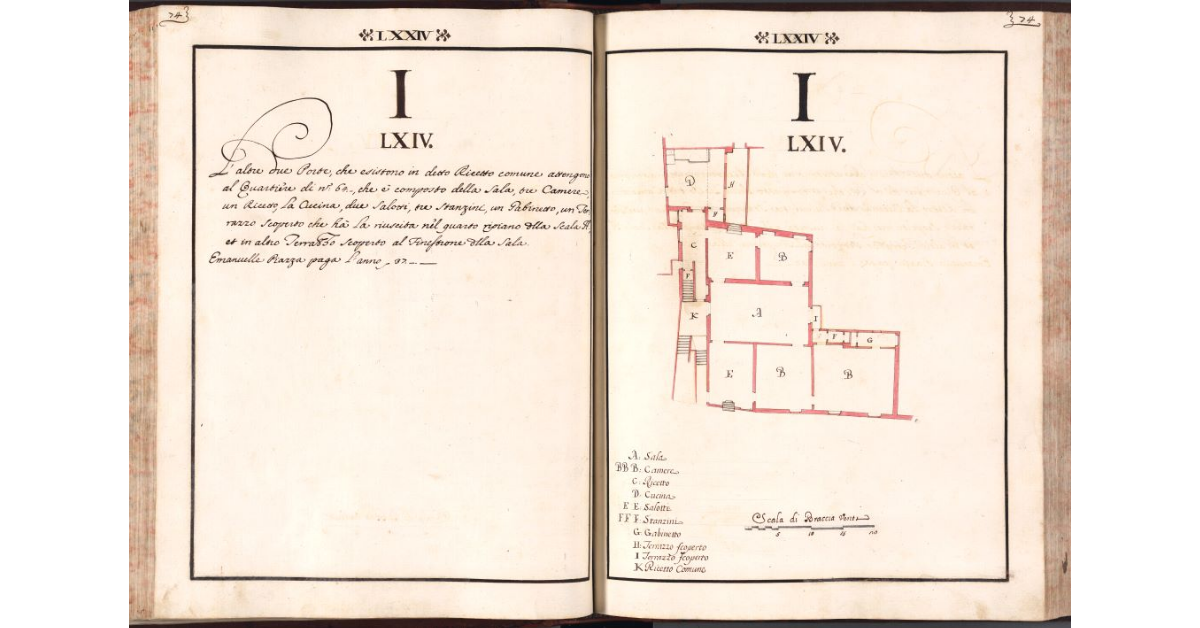 74
LXXIV
I
LXIV.
L'altre due Porte, che esistono in detto Ricetto comune attengono
al Quartiere di n.º 67., che è composto della Sala, tre Camere,
un Ricetto, La Cucina, due Salotti, tre Stanzini, un Gabinetto, un Ter
razzo scoperto che hà La riuscita nel quarto ripiano della Scala
et in altro Terrazzo scoperto al Finestrone della Sala.
Emanuelle Piazza paga L'anno
74
LXXIV
I
LXIV.
D
H
F
C
E
B
F
K
A
I
F
G
E
B
B
A. Sala
BB B: Camere
C: Ricetto
D: Cucina
E E. Salotti
FF F. Stanzini
G: Gabinetto
H: Terrazzo scoperto
I Terrazzo scoperto
K Ricetto Comune
Scala di Braccia Venti
5 10 15 20